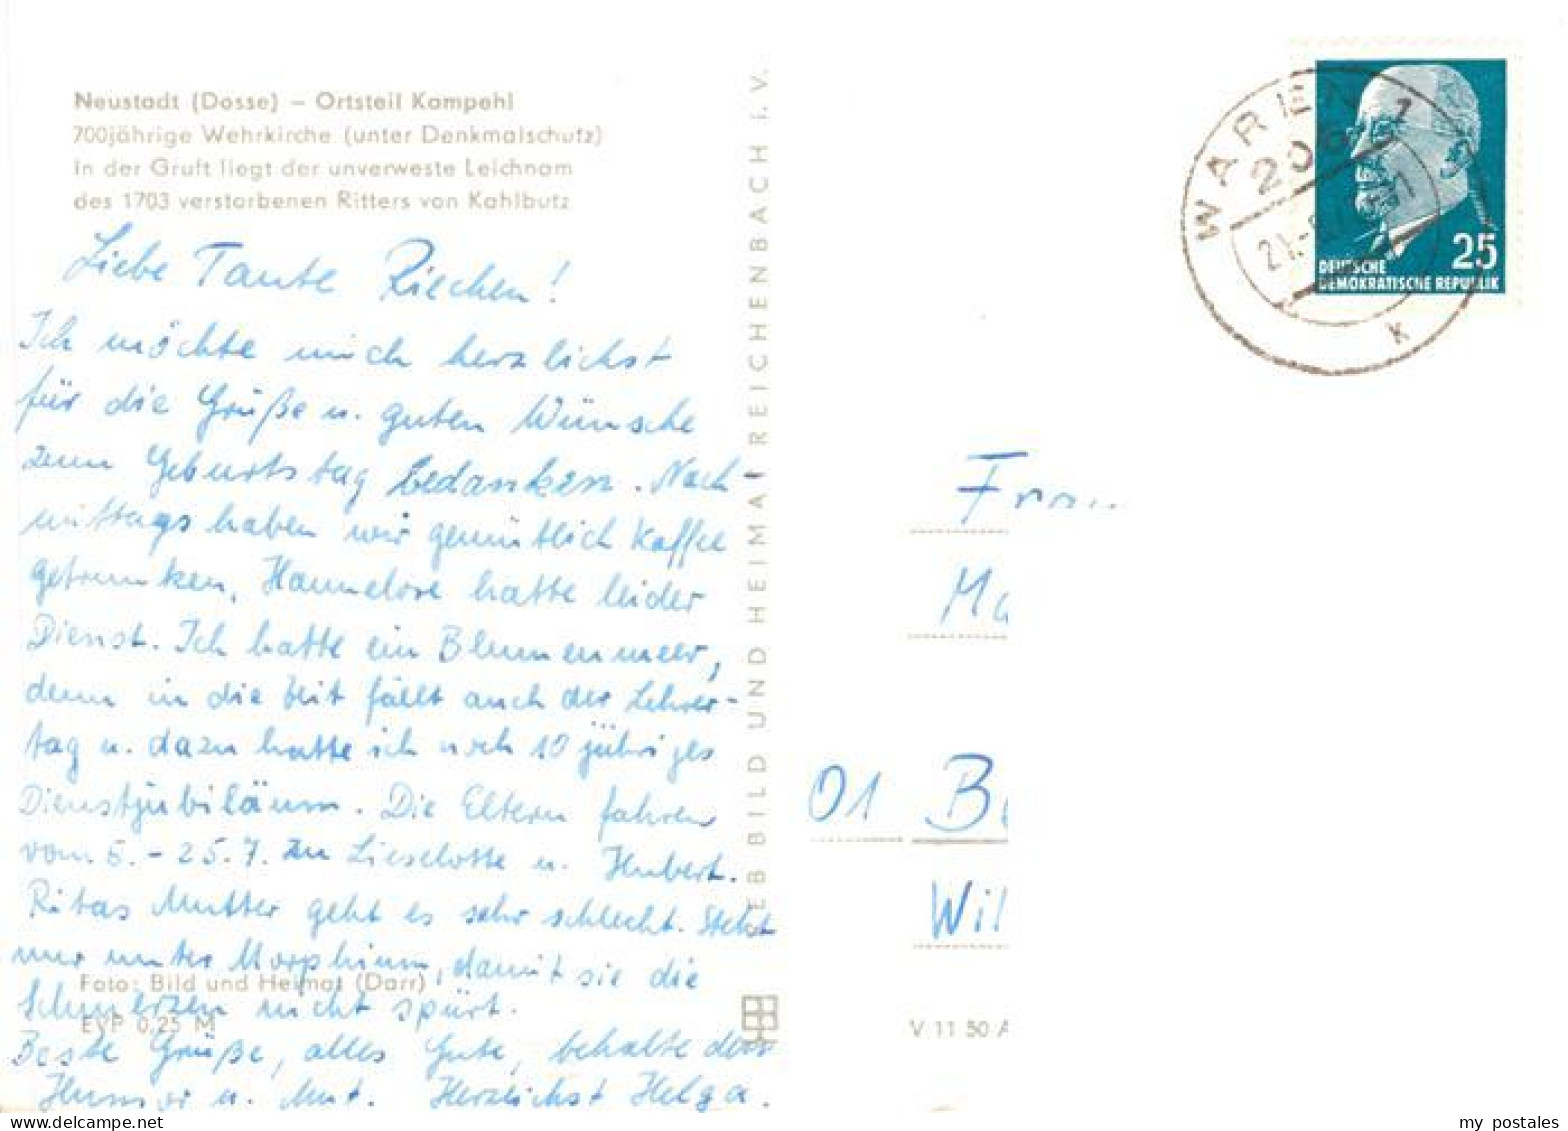 Neustadt (Dosse) – Ortsteil Kampehl
700jährige Wehrkirche (unter Denkmalschutz)
In der Gruft liegt der unverweste Leichnam
des 1703 verstorbenen Ritters von Kahlbutz
Liebe Tante Riechen!
Ich möchte mich herzlichst
für die Grüße u. guten Wünsche
zum Geburtstag bedanken. Nach-
mittags haben wir gemütlich Kaffee
getrunken, Hannelore hatte leider
Dienst. Ich hatte ein Blumenmeer,
denn in die Zeit fällt auch der Lehrer-
tag u. dazu hatte ich noch 10 jähriges
Dienstjubiläum. Die Eltern fahren
vom 5. - 25.7. zu Lieselotte u. Hubert.
Ritas Mutter geht es sehr schlecht. Steht
nur unter Morphium, damit sie die
Foto: Bild und Heimat (Darr)
Schmerzen nicht spürt.
EVP 0,25 M
Beste Grüße, alles Gute, behalte den
Humor u. Mut. Herzlichst Helga.
EB BILD UND HEIMAT REICHENBACH i. V.
WAREN 1
206
K
25
DEUTSCHE
DEMOKRATISCHE REPUBLIK
Frau
01
Wil
V 11 50 A
my postales